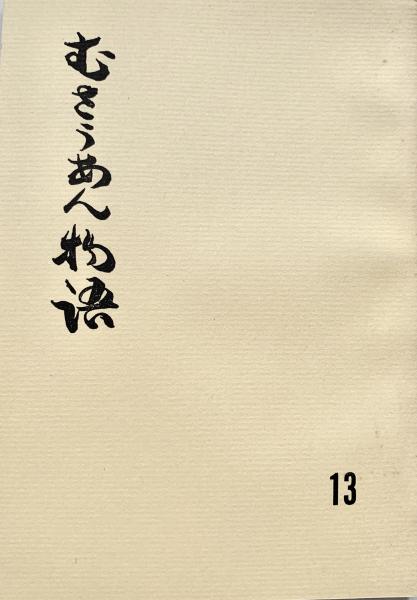 むさうあん物語
13